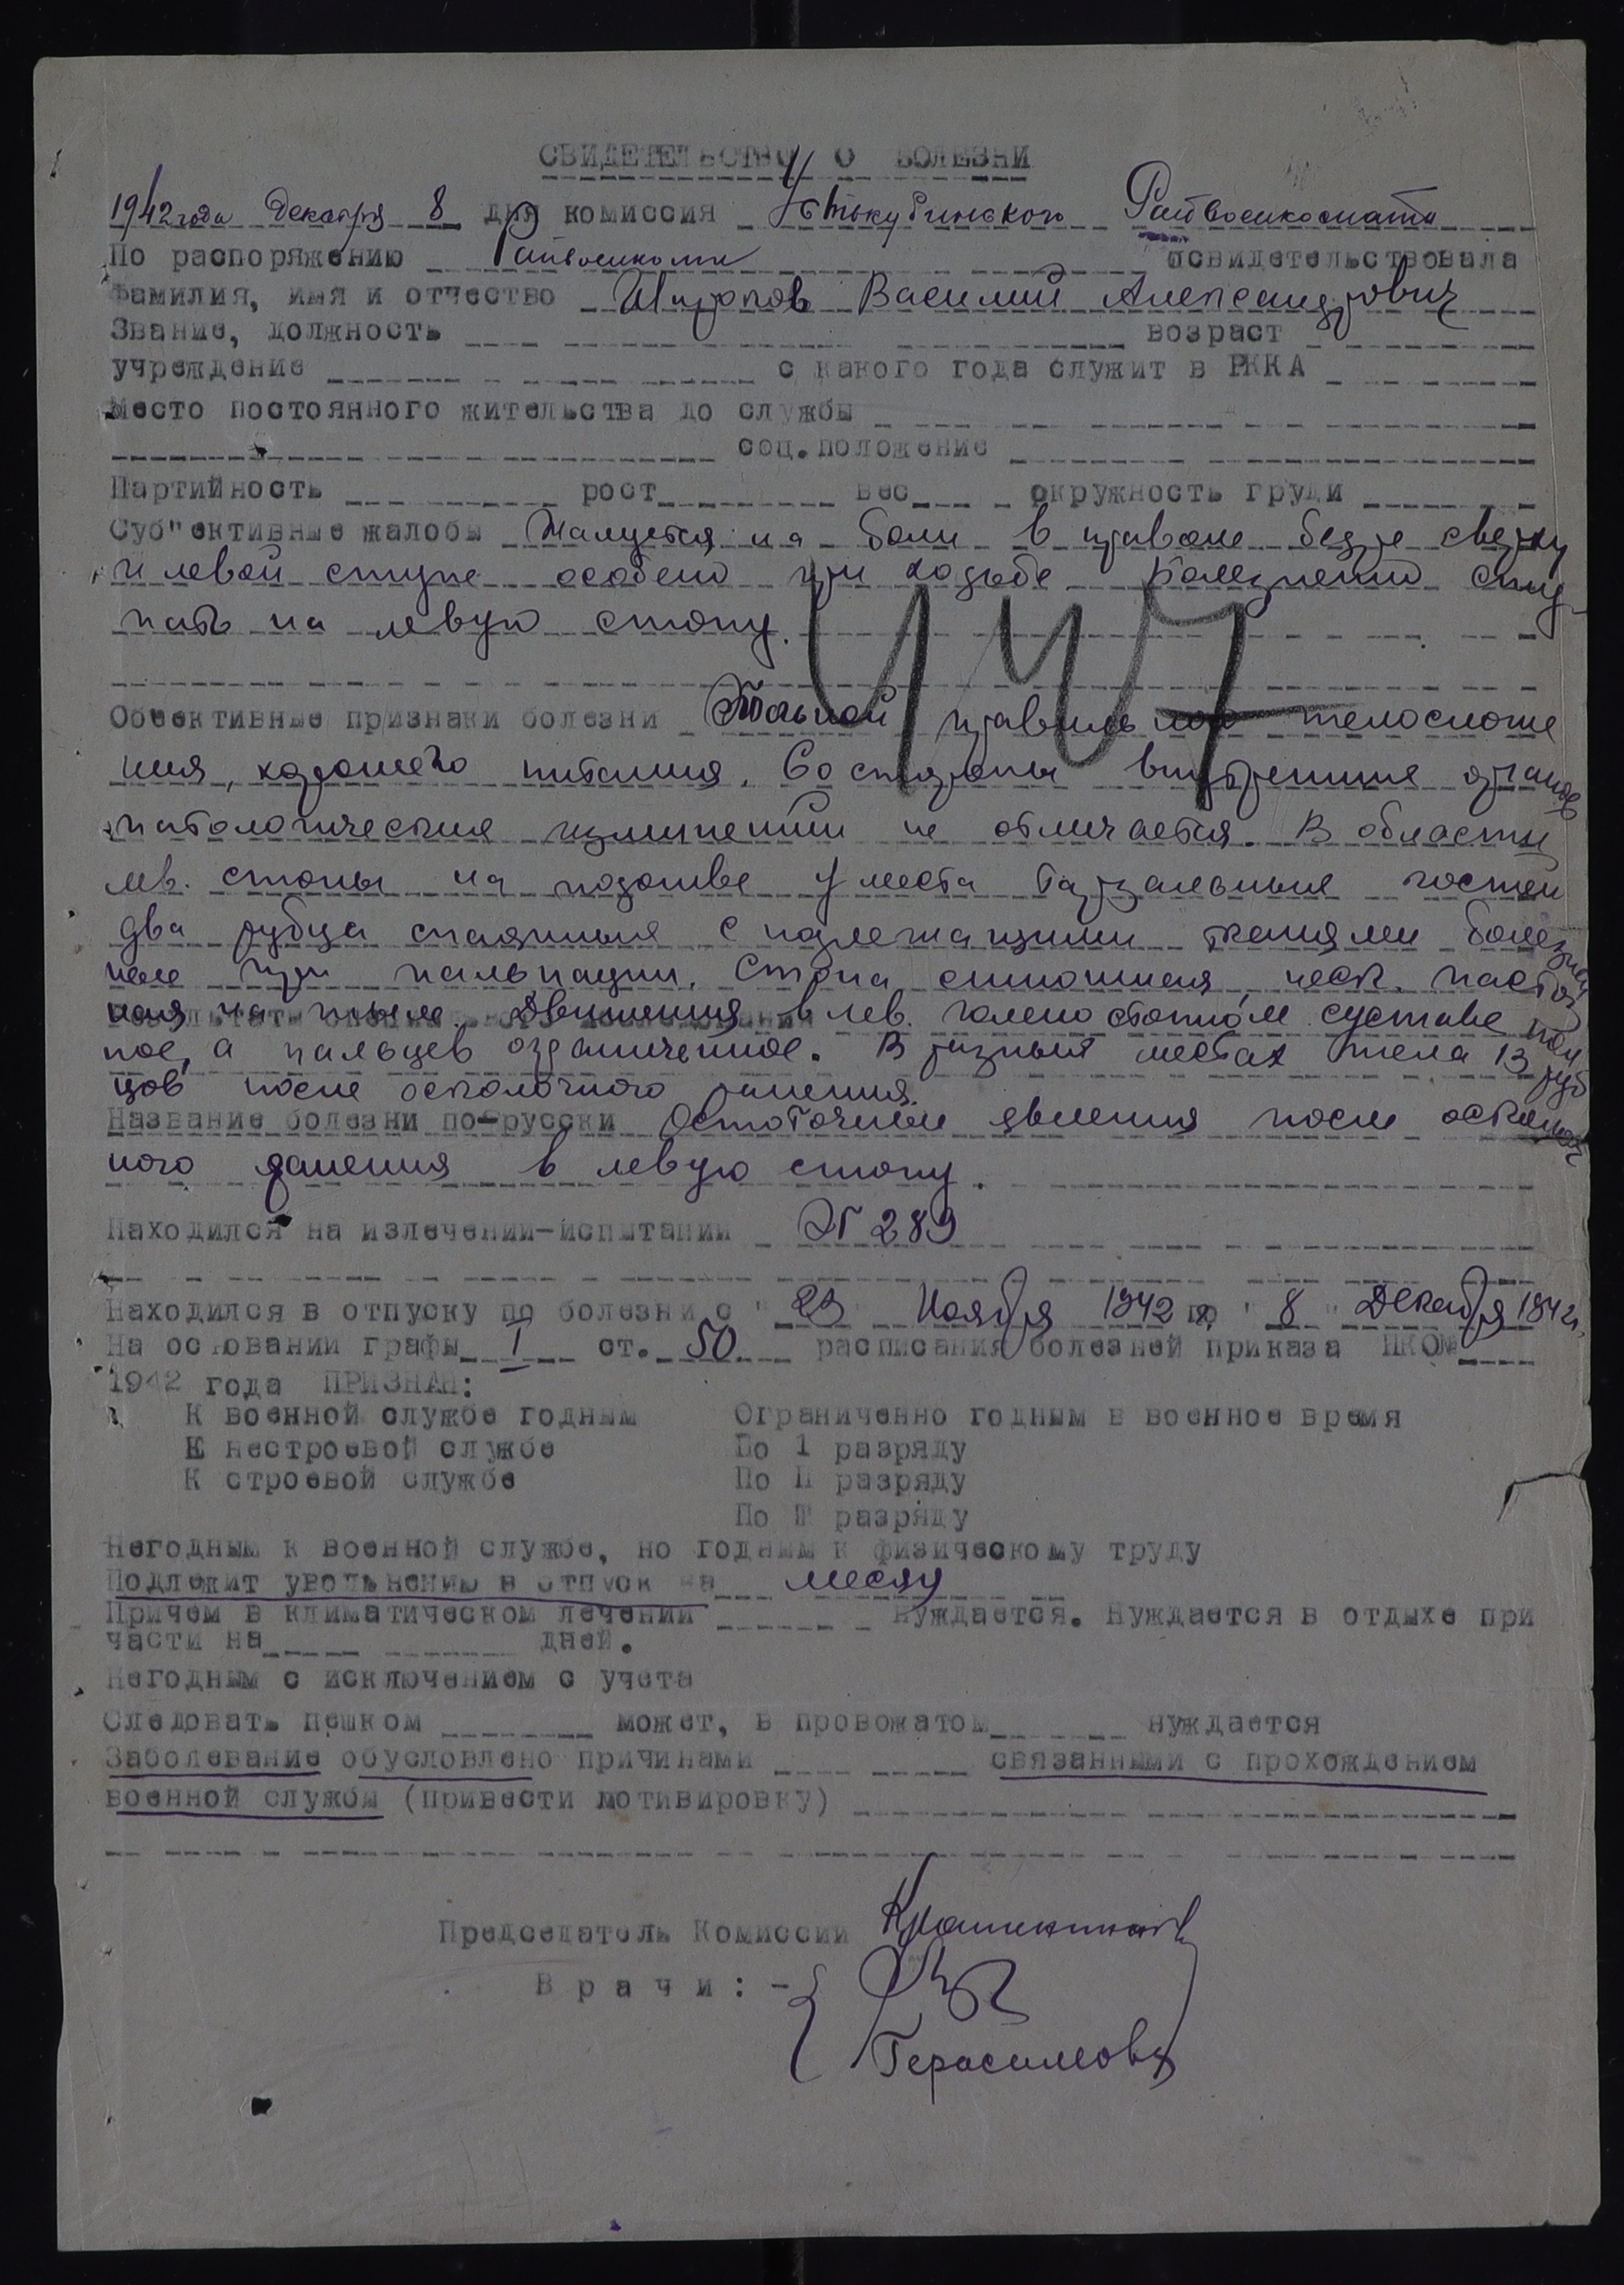 СВИДЕТЕЛЬСТВО О БОЛЕЗНИ
1942 года Декабря 8 дня комиссия Устькубинского Райвоенкомата
По распоряжению Райвоенкома освидетельствовала
Фамилия, имя и отчество Широков Василий Александрович
Звание, должность возраст
учреждение с какого года служит в РККА
Место постоянного жительства до службы
соц.положение
Партийность рост вес окружность груди
Суб"ективные жалобы Жалуется на боли в правом бедре сверху
и левой ступе особено при ходьбе Болезненно сту-
пать на левую стопу.
147
Обективные признаки болезни Больной правильного телосложе
ния, хорошего питания. Со стороны внутренние органов
патологических изменений не отмечается. В области
лев. стопы на подошве у места тарзальных костей
два рубца спаянные с подлежащими тканями болезнен
ные при пальпации. Стопа синюшная, части. пастоз
ная на тыле. Движения в лев. голеностопном суставе пол
ное, а пальцев ограниченное. В разных местах тела 13 руб
цов после осколочного ранения.
Название болезни по-русски Остаточные явления после осколоч
ного ранения в левую стопу.
Находился на излечении-испытании ЭГ 289
Находился в отпуску по болезни с " 23 Ноября 1942 по " 8 " Декабря 1942г.
На основании графы I ст. 50 расписания болезней приказа НКО№
1942 года ПРИЗНАН:
К военной службе годным Ограниченно годным в военное время
К нестроевой службе По 1 разряду
К строевой службе По П разряду
По Ш разряду
Негодным к военной службе, но годным к физическому труду
Подлежит увольнению в отпуск на месяц
Причем в климатическом лечении нуждается. Нуждается в отдыхе при
части на дней.
Негодным с исключением с учета
Следовать пешком может, в провожатом нуждается
Заболевание обусловлено причинами связанными с прохождением
военной службы (привести мотивировку)
Председатель Комиссии
Врачи: -
Герасимова